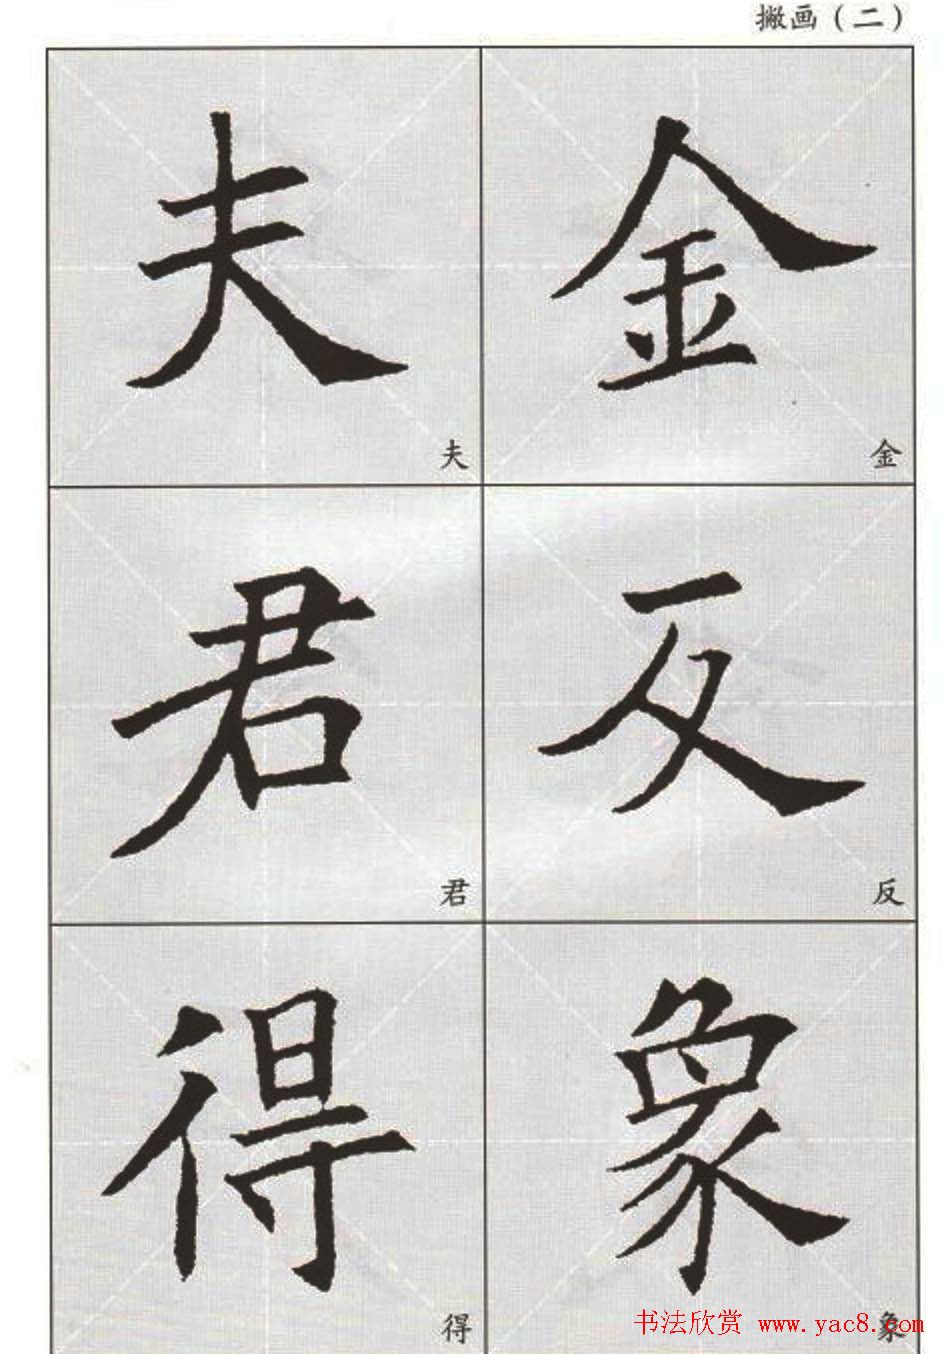 撇画（二）
夫 金
夫 金
君 反
君 反
得 象
得 象
书法欣赏 www.yac8.com